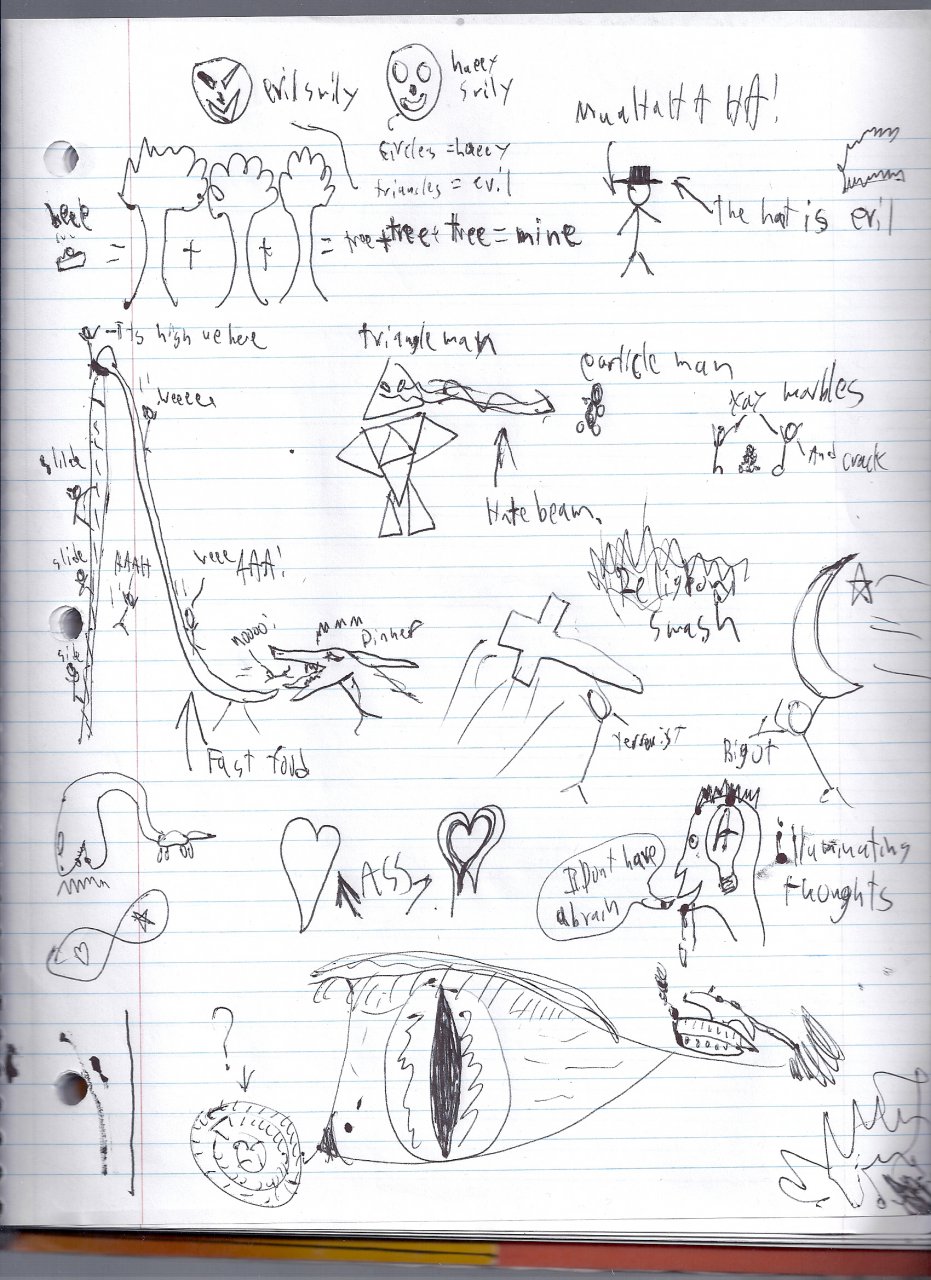 evil smily
haeey
smily
MuaHaHA HA!
Circles = haeey
triangles = evil
the hat is evil
= + + = tree + tree + tree = mine
-It's high ue here
triangle man
earticle man
weeeee
xay marbles
And crack
slide
Hate beam.
slide
AAAH
weee AAA!
Religeon
Smash
noooo!
mmm
Dinner
Terrorist
Bigot
Fast food
ASS
I Dont have
a brain
illuminating
thoughts
?